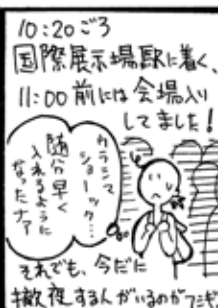 10:20ごろ
国際展示場駅に着く、
11:00前には会場入り
してました!
カラミマ
ショーック…
随分早く
入れるように
なったナァ
それでも、今だに
徹夜するんがいるのが